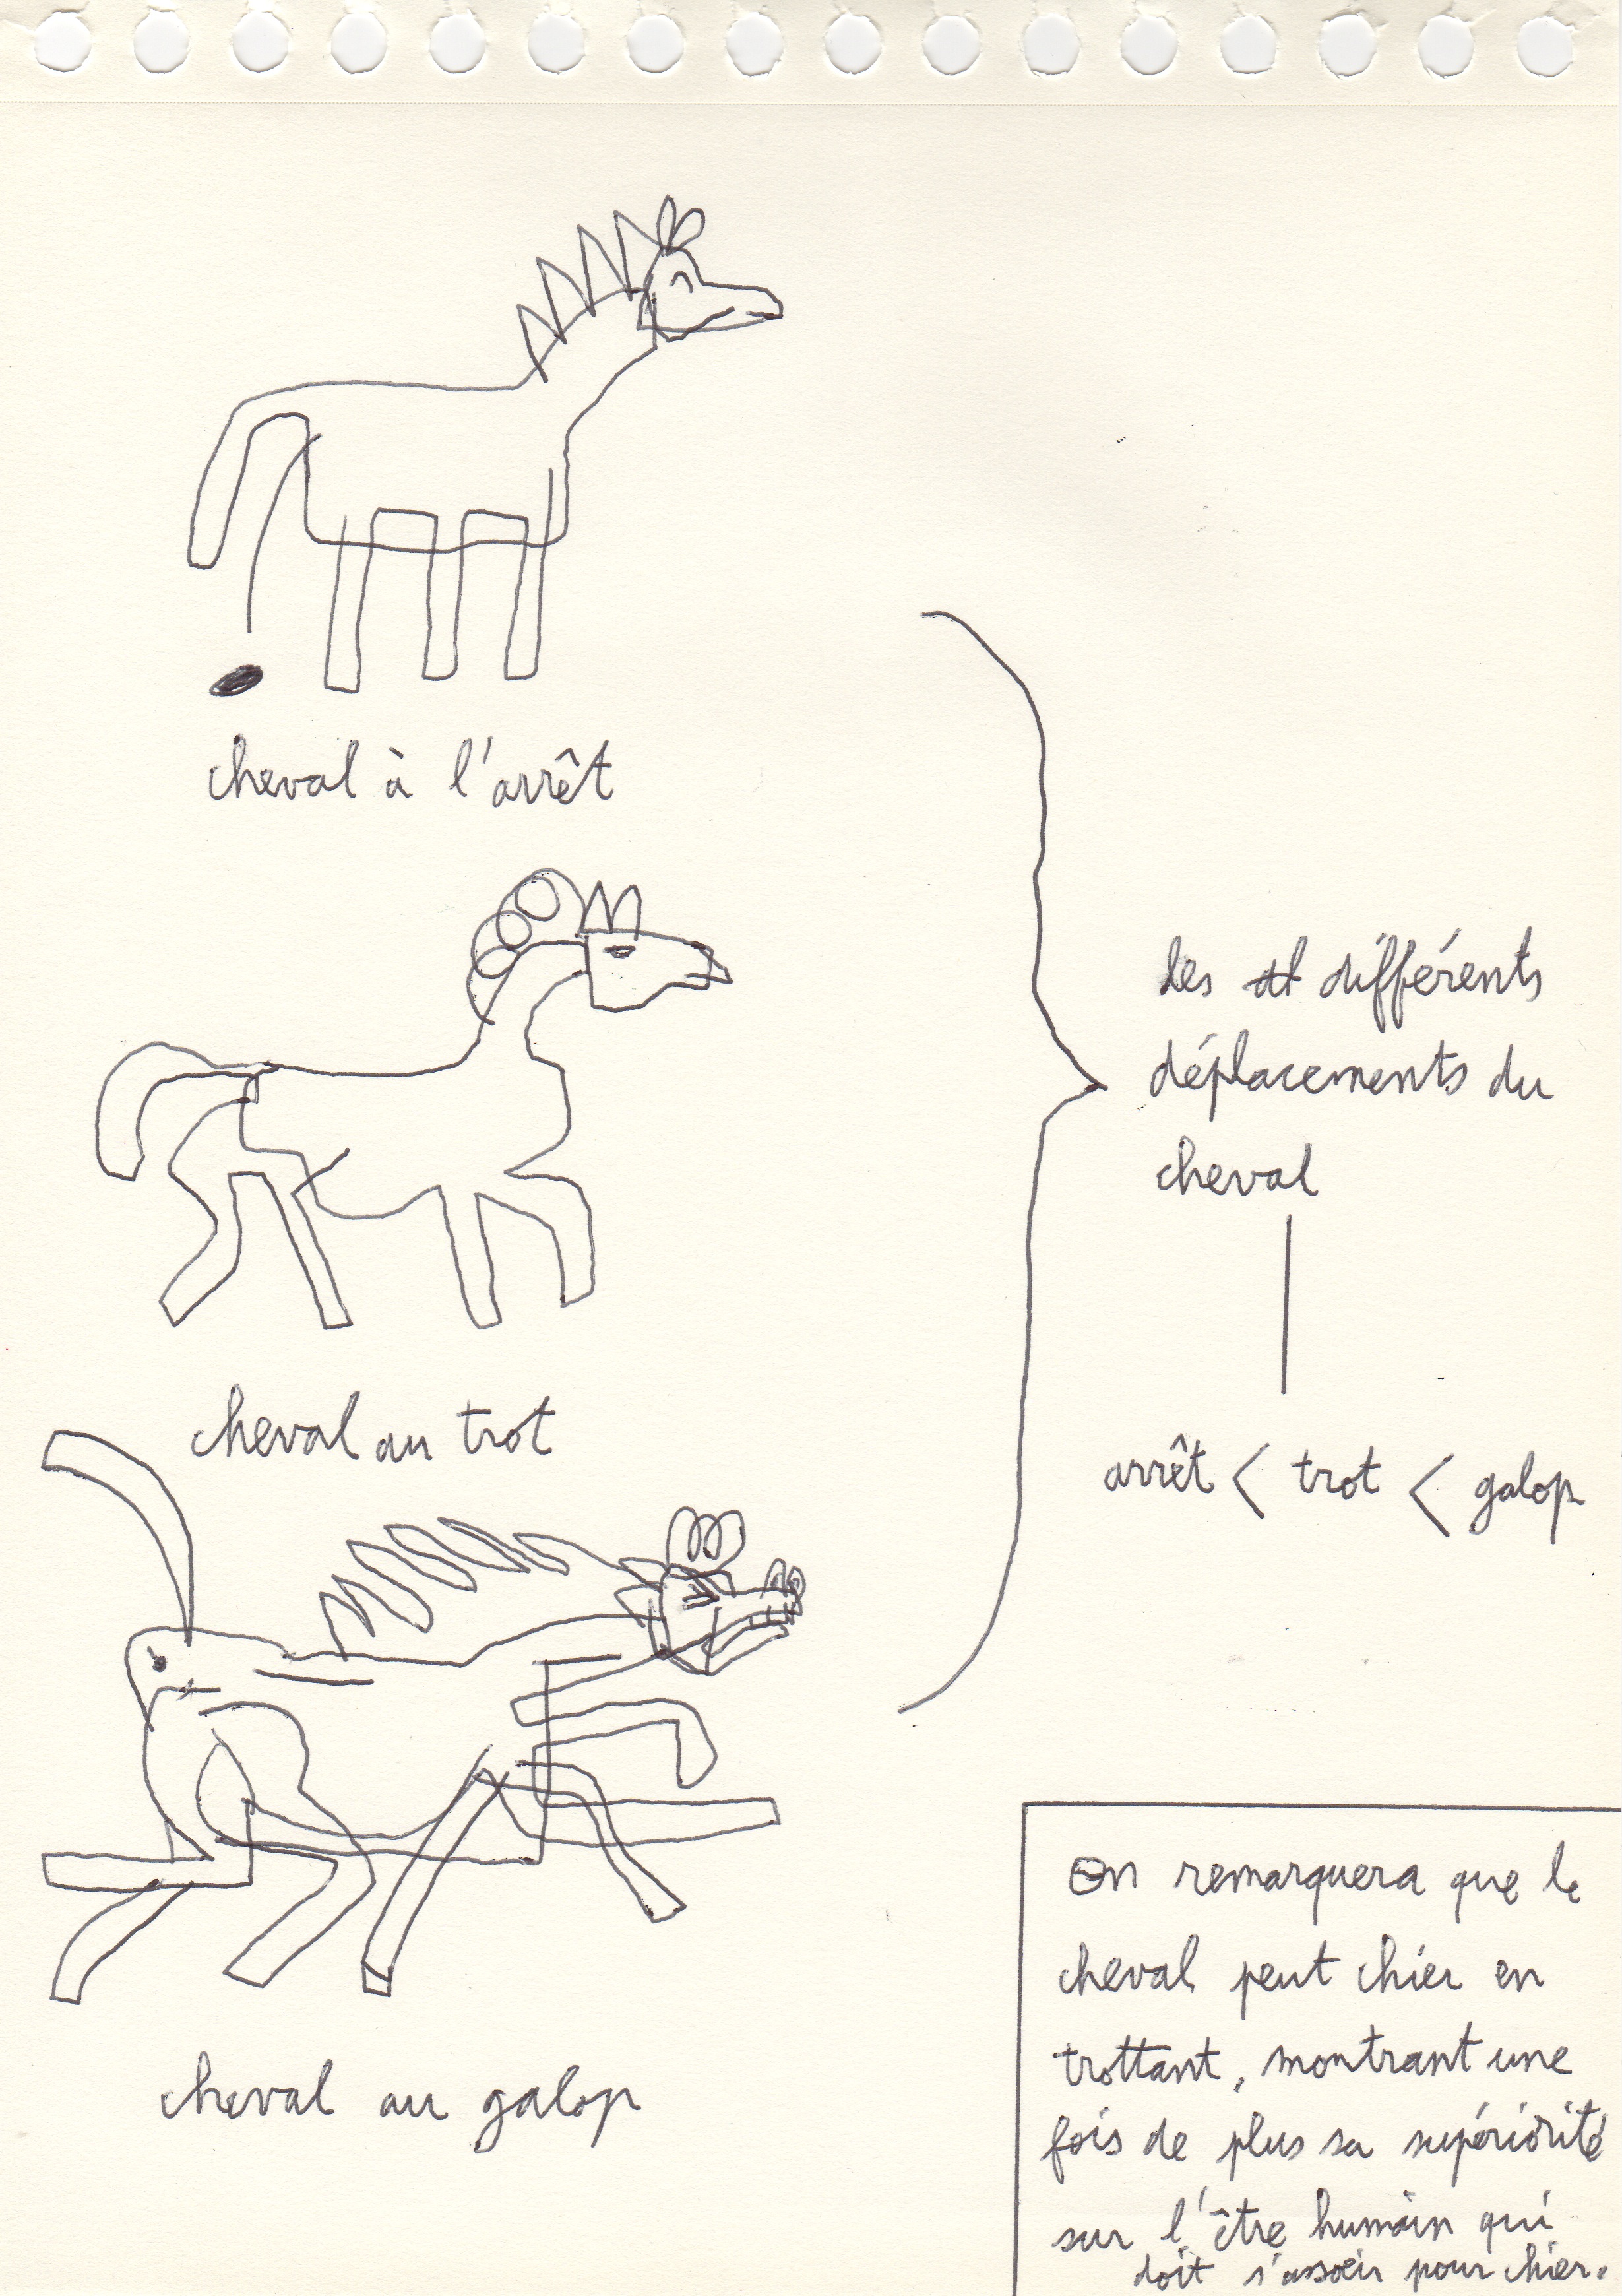 cheval à l'arrêt
cheval au trot
cheval au galop
les différents
déplacements du
cheval
arrêt < trot < galop
On remarquera que le
cheval peut chier en
trottant, montrant une
fois de plus sa supériorité
sur l'être humain qui
doit s'assoir pour chier.